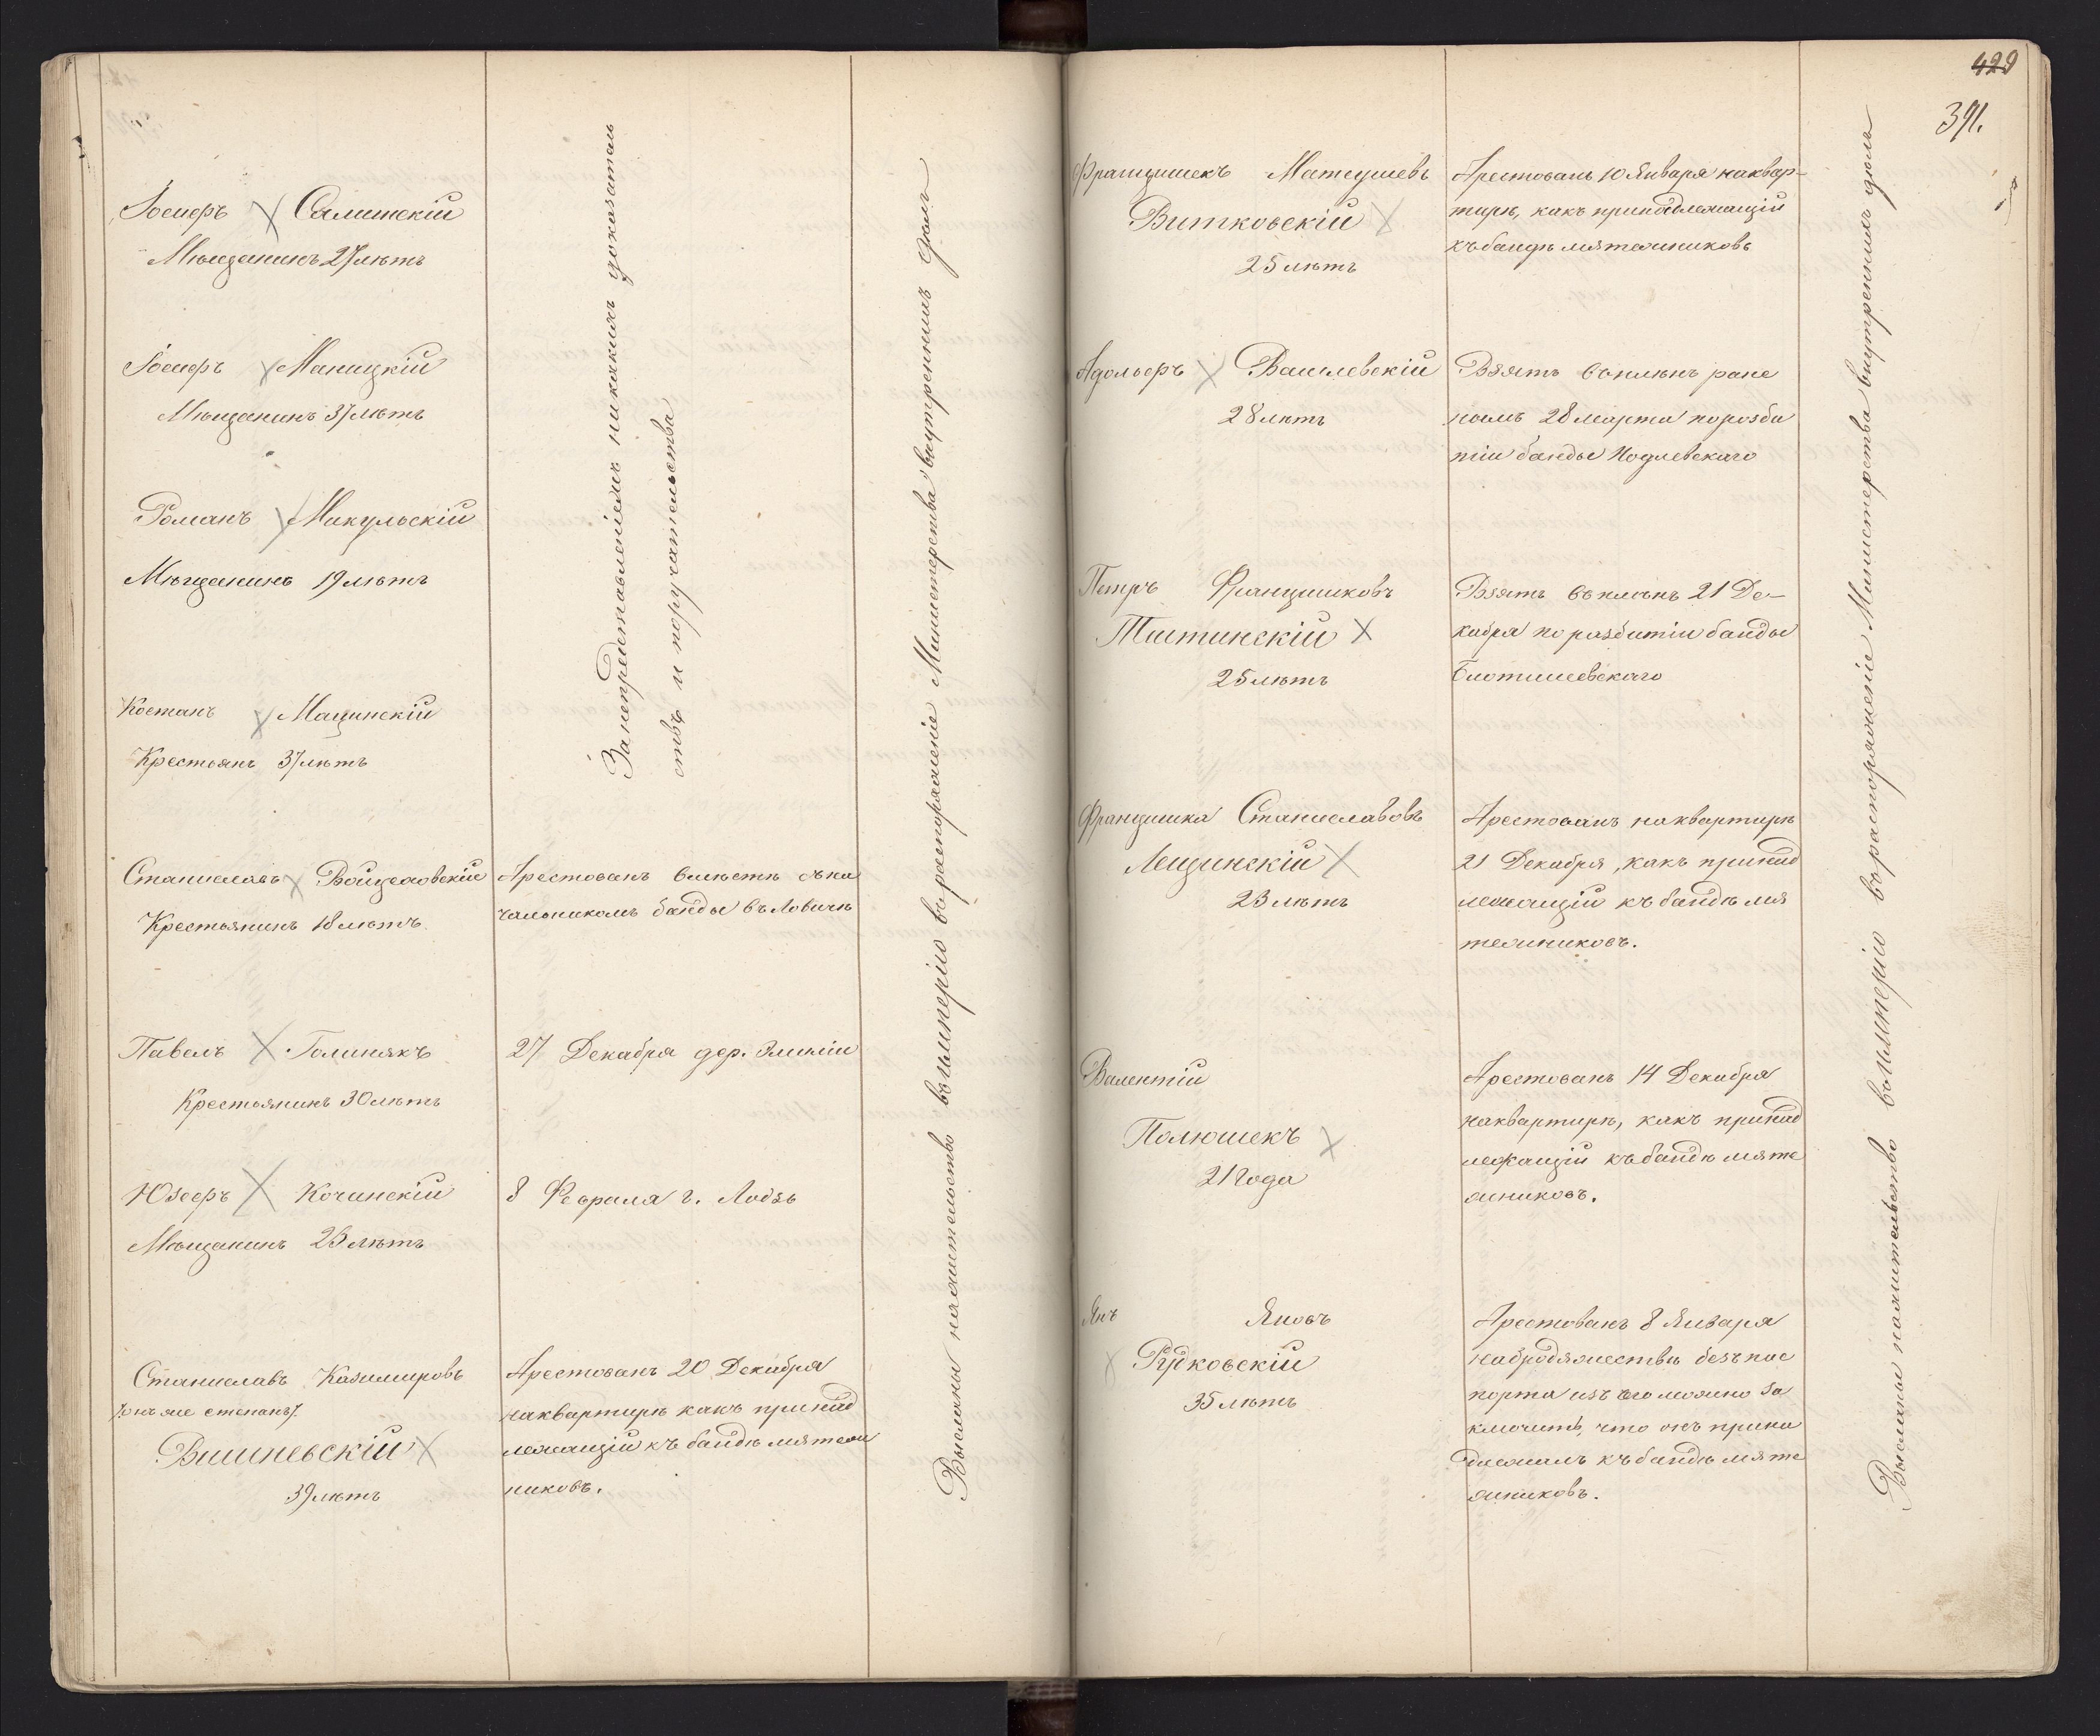 Іосифъ Салитскій
Мѣщанинъ 27 лѣтъ
Іосифъ Маницкій
Мѣщанинъ 37 лѣтъ
Романъ Микульскій
Мѣщанинъ 19 лѣтъ
Костанъ Мацинскій
Крестьянъ 37 лѣтъ
За непредставленіемъ никакихъ доказатель
ствъ и поручательства
Станиславъ Войцеховскій
Крестьянинъ 18 лѣтъ
Арестованъ вмѣстѣ съ на
чальникомъ банды въ Ловичѣ
Павелъ Голинякъ
Крестьянинъ 30 лѣтъ
27 Декабря дер.
Юзефъ Кочинскій
Мѣщанинъ 23 лѣтъ
8 Февраля г. Лодзь
Станиславъ Казимировъ
/онъ же степанъ/
Вишневскій
39 лѣтъ
Арестованъ 20 Декабря
на квартирѣ какъ принад
лежащій къ бандѣ мятеж
никовъ.
Высланы на жительство въ имперію въ распоряженіе Министерства внутреннихъ дѣлъ
429
391.
Францишекъ Матеушевъ
Витковскій
25 лѣтъ
Арестованъ 10 Января на квар-
тирѣ, какъ принадлежащій
къ бандѣ мятежниковъ
Адольфъ Василевскій
28 лѣтъ
Взятъ въ плѣнъ ране
нымъ 28 марта по розби
тіи банды Подлевскаго
Петръ Францишковъ
Тштинскій
25 лѣтъ
Взятъ въ плѣнъ 21 Де-
кабря по разбитіи банды
Францишка Станиславовъ
Лещинскій
23 лѣтъ
Арестованъ на квартирѣ
21 Декабря, какъ принад
лежащій къ бандѣ мя
тежниковъ.
Валентій
Полюшекъ
21 года
Арестованъ 14 Декабря
на квартирѣ, какъ принад
лежащій къ бандѣ мяте
жниковъ.
Янъ Яновъ
Рудковскій
35 лѣтъ
Арестованъ 8 Января
на бродяжествѣ безъ пас
порта изъ чего можно за
ключить, что онъ прина
длежалъ къ бандѣ мяте
жниковъ.
Высланы на жительство въ имперію въ распоряженіе Министерства внутреннихъ дѣлъ